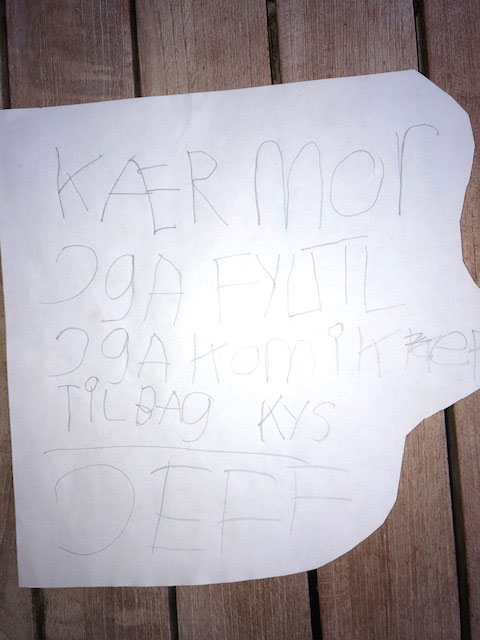 KÆR mor
JgA FYUTIL
JgA KOmiK
TiLBAg KYS
JEFF